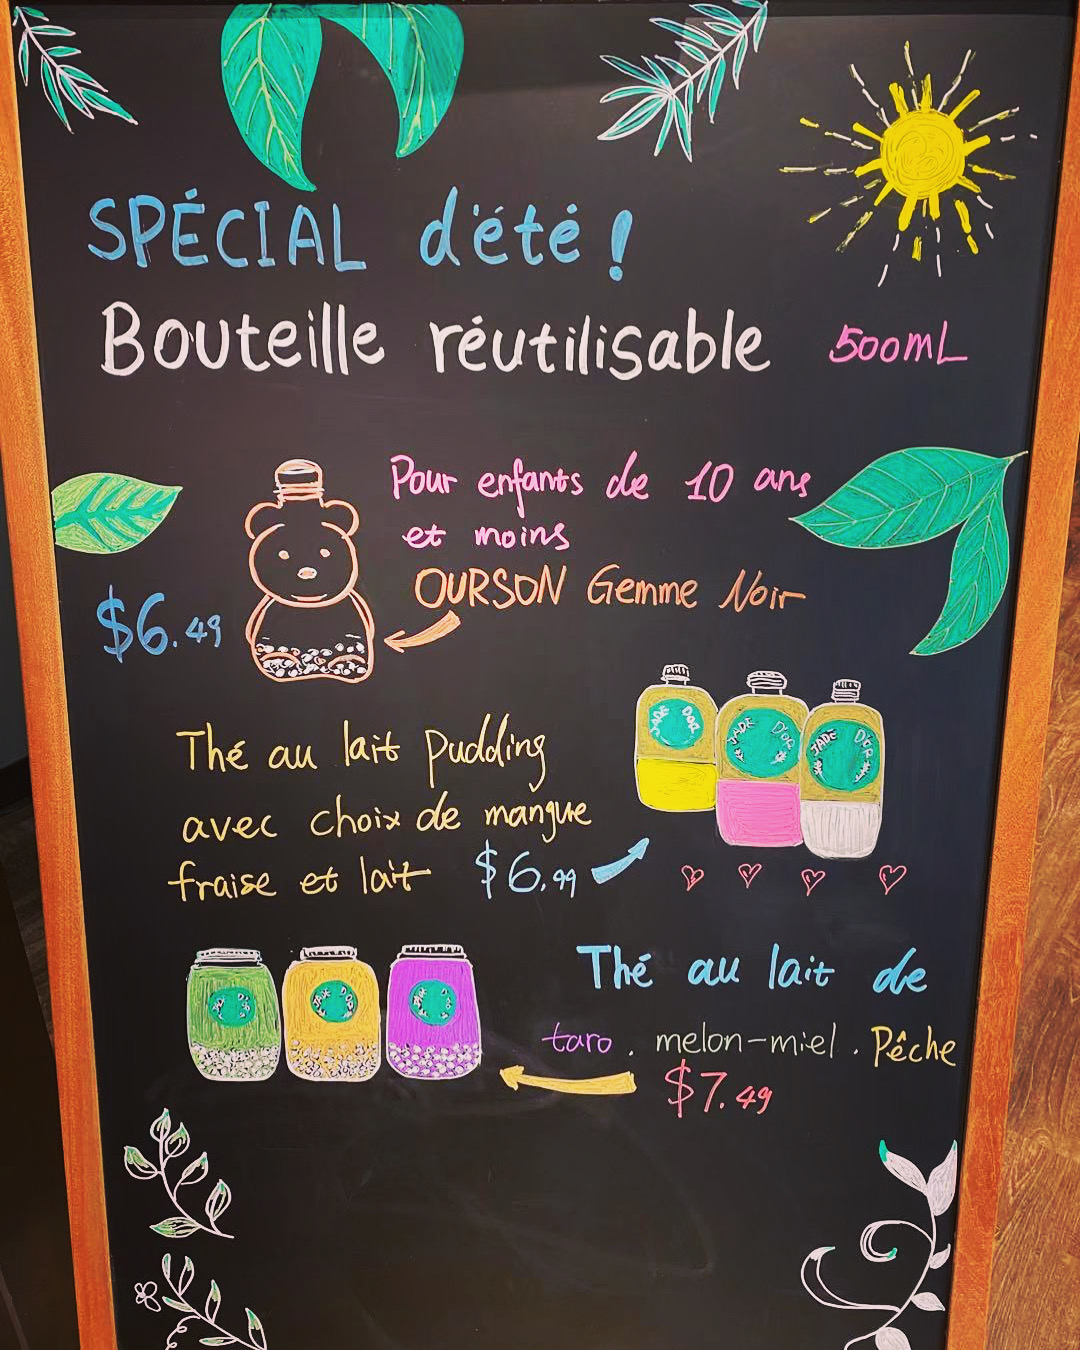 SPÉCIAL d'été !
Bouteille réutilisable 500mL
Pour enfants de 10 ans
et moins
OURSON Gemme Noir
$6.49
JADE D'OR
JADE D'OR
JADE D'OR
Thé au lait pudding
avec choix de mangue
fraise et lait $6.99
JADE D'OR
JADE D'OR
JADE D'OR
Thé au lait de
taro . melon-miel . Pêche
$7.49